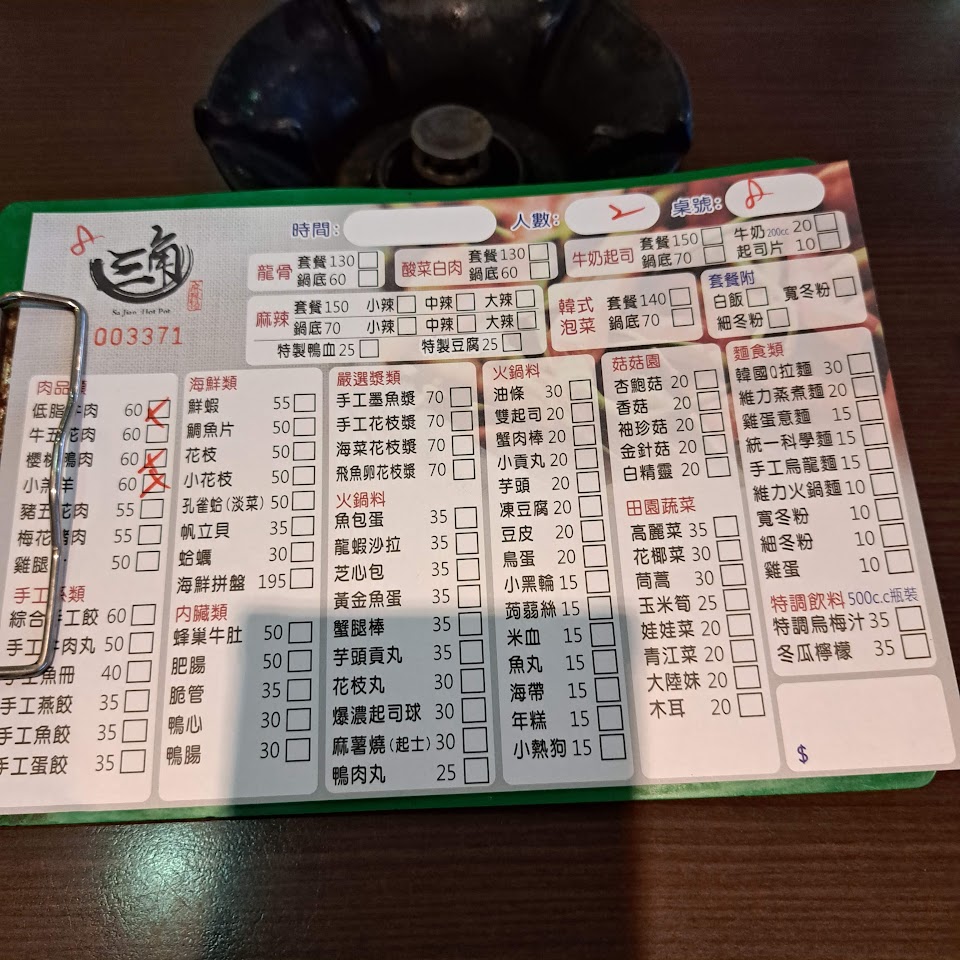 時間: 人數: 2 桌號: 8
8
三角
麻辣鍋
Sa Jiao Hot Pot
003371
龍骨 套餐130 鍋底60
酸菜白肉 套餐130 鍋底60
牛奶起司 套餐150 鍋底70 牛奶200cc 20 起司片 10
麻辣 套餐150 小辣 中辣 大辣
鍋底70 小辣 中辣 大辣
特製鴨血25 特製豆腐25
韓式泡菜 套餐140 鍋底70
套餐附
白飯 寬冬粉
細冬粉
肉品類
低脂牛肉 60
牛五花肉 60
櫻桃鴨肉 60
小羔羊 60
豬五花肉 55
梅花豬肉 55
雞腿 50
手工 類
綜合手工餃 60
手工牛肉丸 50
手工魚冊 40
手工燕餃 35
手工魚餃 35
手工蛋餃 35
海鮮類
鮮蝦 55
鯛魚片 50
花枝 50
小花枝 50
孔雀蛤(淡菜) 50
帆立貝 35
蛤蠣 30
海鮮拼盤 195
內臟類
蜂巢牛肚 50
肥腸 50
脆管 35
鴨心 30
鴨腸 30
嚴選漿類
手工墨魚漿 70
手工花枝漿 70
海菜花枝漿 70
飛魚卵花枝漿 70
火鍋料
魚包蛋 35
龍蝦沙拉 35
芝心包 35
黃金魚蛋 35
蟹腿棒 35
芋頭貢丸 35
花枝丸 30
爆濃起司球 30
麻薯燒(起士) 30
鴨肉丸 25
火鍋料
油條 30
雙起司 20
蟹肉棒 20
小貢丸 20
芋頭 20
凍豆腐 20
豆皮 20
鳥蛋 20
小黑輪 15
蒟蒻絲 15
米血 15
魚丸 15
海帶 15
年糕 15
小熱狗 15
菇菇園
杏鮑菇 20
香菇 20
袖珍菇 20
金針菇 20
白精靈 20
田園蔬菜
高麗菜 35
花椰菜 30
茼蒿 30
玉米筍 25
娃娃菜 20
青江菜 20
大陸妹 20
木耳 20
麵食類
韓國Q拉麵 30
維力蒸煮麵 20
雞蛋意麵 15
統一科學麵 15
手工烏龍麵 15
維力火鍋麵 10
寬冬粉 10
細冬粉 10
雞蛋 10
特調飲料 500c.c瓶裝
特調烏梅汁 35
冬瓜檸檬 35
$